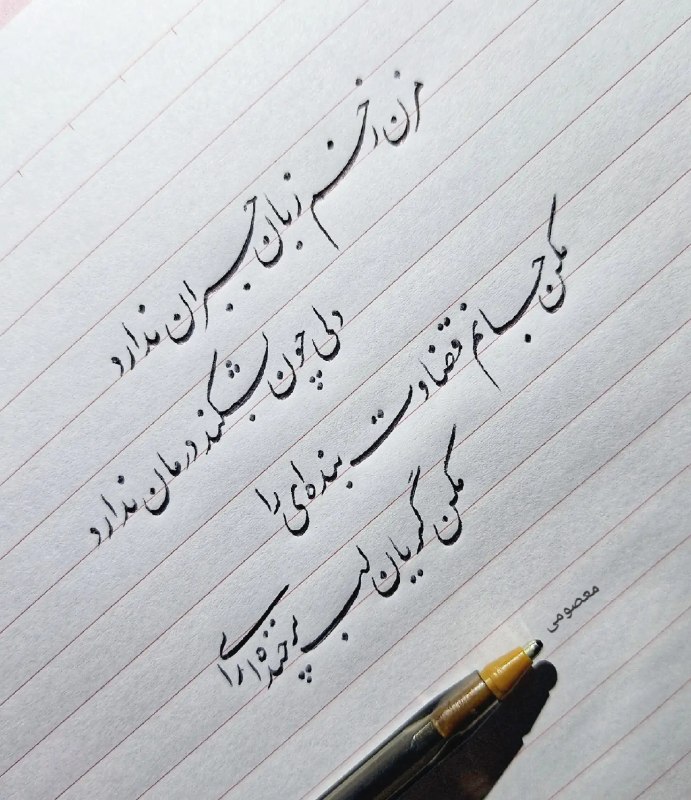 مزن زخم زبان جبران ندارد
دلی چون بشکند درمان ندارد
مکن جانم قضاوت بنده‌ای را
مکن گریان لب پرخنده‌ای را
معصومی